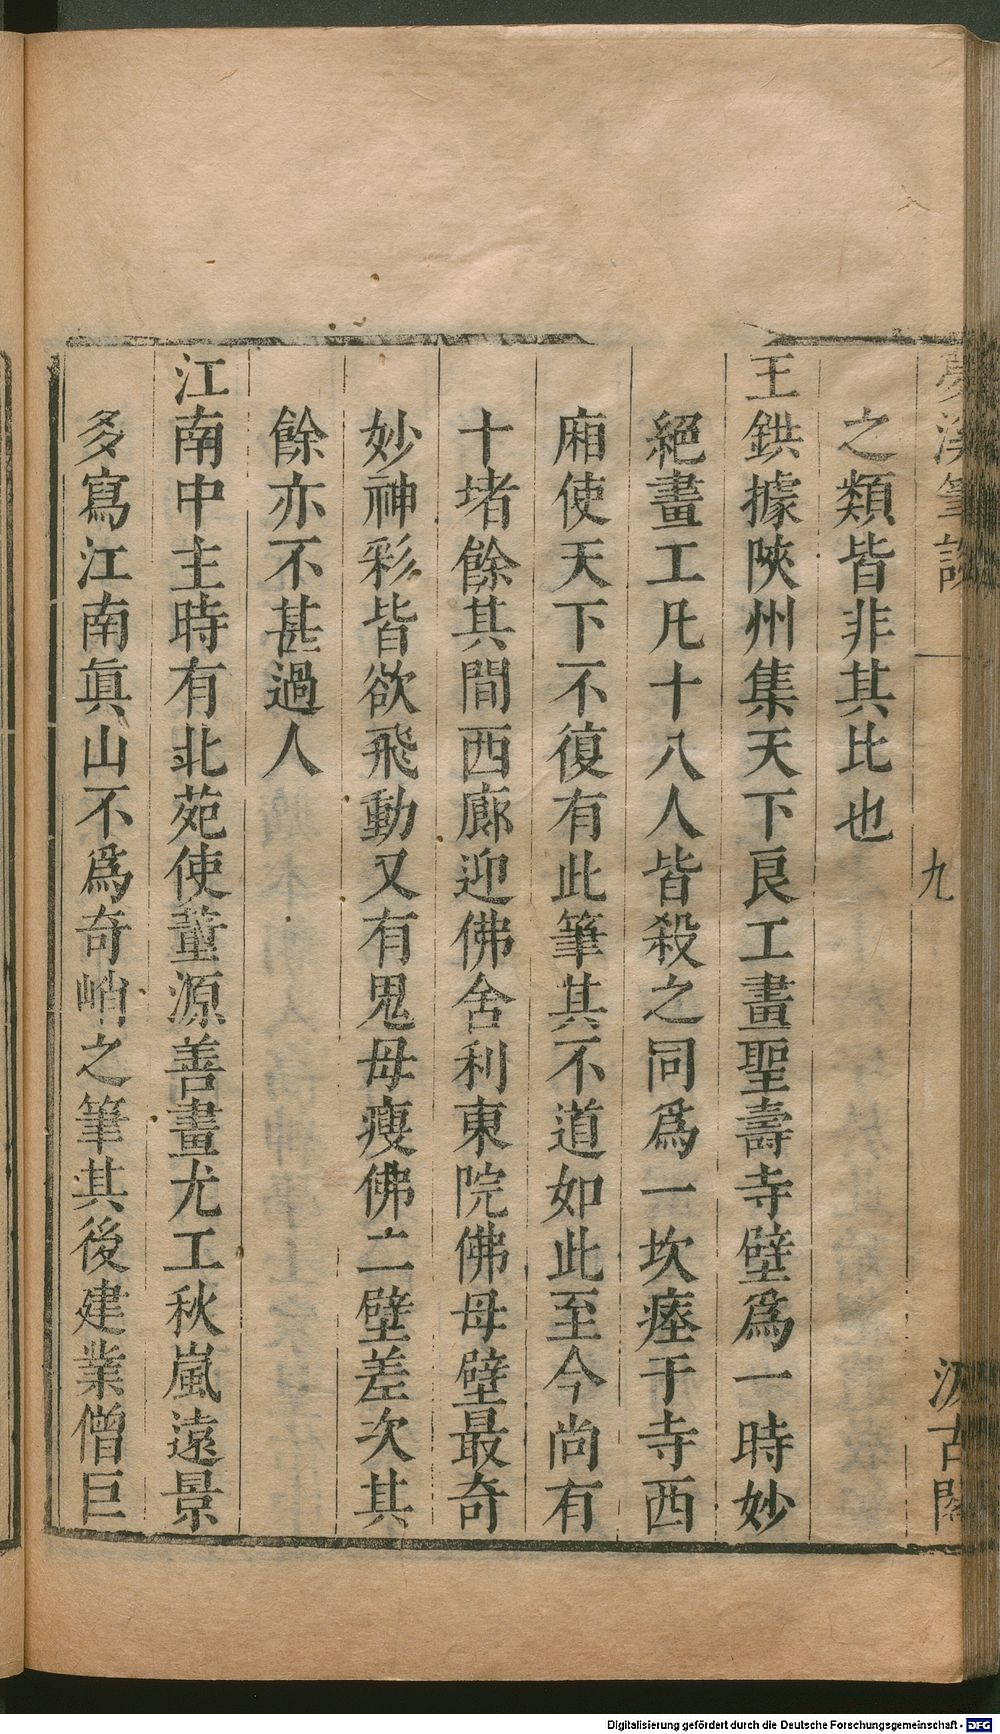 夢溪筆談
九
汲古閣
之類皆非其比也
王鉷據陜州集天下良工畫聖壽寺壁爲一時妙
絕畫工凡十八人皆殺之同爲一坎瘞于寺西
廂使天下不復有此筆其不道如此至今尚有
十堵餘其間西廊迎佛舍利東院佛母壁最奇
妙神彩皆欲飛動又有鬼母瘦佛二壁差次其
餘亦不甚過人
江南中主時有北苑使董源善畫尤工秋嵐遠景
多寫江南眞山不爲奇峭之筆其後建業僧巨
Digitalisierung gefördert durch die Deutsche Forschungsgemeinschaft - DFG